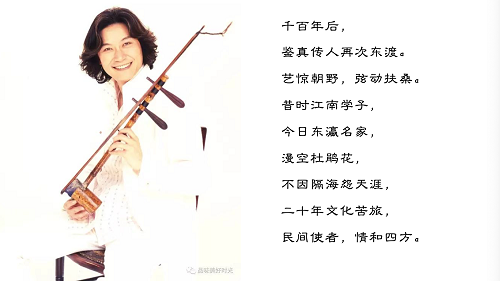 千百年后，
鉴真传人再次东渡。
艺惊朝野，弦动扶桑。
昔时江南学子，
今日东瀛名家，
漫空杜鹃花，
不因隔海怨天涯，
二十年文化苦旅，
民间使者，情和四方。